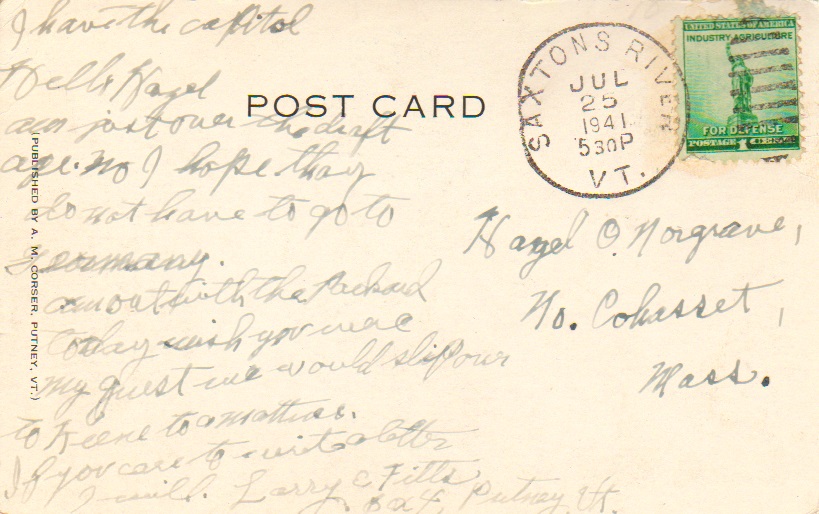 I have the capitol
Hello Hazel
am just over the draft
age. no I hope they
do not have to go to
germany.
am out with the Packard
today wish you were
my guest we would slip over
to Keene to a matinee.
If you care to write a letter
I will. Larry E Fitts
Box 4 Putney Vt.
POST CARD
(PUBLISHED BY A. M. CORSER, PUTNEY, VT.)
SAXTONS RIVER
JUL
25
1941
5 30P
VT.
UNITED STATES OF AMERICA
INDUSTRY AGRICULTURE
FOR DEFENSE
POSTAGE 1 CENT
Hazel O. Norgrave,
No. Cohasset,
Mass.